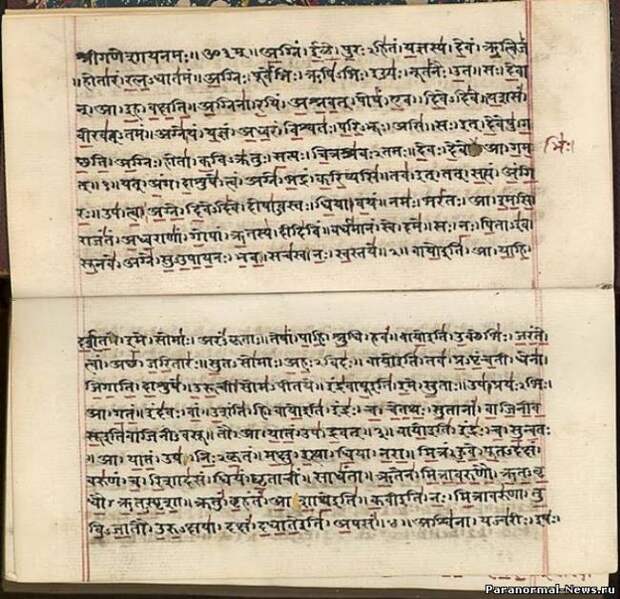 श्रीगणेशायनमः॥ॐ३म्॥अग्निं।ईळे।पुरःऽहितं।यज्ञस्य।देवं।ऋत्विजं
॥होतारं।रत्नऽधातमं॥अग्निः।पूर्वेभिः।ऋषिऽभिः।ईड्यः।नूतनैः।उत॥सः।देवा
न्।आ।इह।वक्षति॥अग्निना।रयिं।अश्नवत्।पोषं।एव।दिवेऽदिवे॥यशसं
वीरवत्ऽतमं॥अग्ने।यं।यज्ञं।अध्वरं।विश्वतः।परिऽभूः।असि॥सः।इत्।देवेषु।ग
छति॥अग्निः।होता।कविऽक्रतुः।सत्यः।चित्रश्रवःऽतमः॥देवः।देवे।आ।गम
भिः।
त्॥१॥यत्।अंग।दाशुषे।त्वं।अग्ने।भद्रं।करिष्यसि॥तव।इत्।तत्।सत्यं।अंगि
रः॥उप।त्वा।अग्ने।दिवेऽदिवे।दोषाऽवस्तः।धिया।वयं॥नमः।भरंतः।आ।इमसि
राजंतं।अध्वराणां।गोपां।ऋतस्य।दीदिविं॥वर्धमानं।स्वे।दमे॥सः।नः।पिताऽइव
सूनवे।अग्ने।सुऽउपायनः।भव॥सचस्व।नः।स्वस्तये॥२॥वायोइति।आ।याहि।
दर्शत।इमे।सोमाः।अरंऽकृताः॥तेषां।पाहि।श्रुधि।हवं॥वायोइति।उक्थेभिः।जरंते
त्वां।अछ।जरितारः॥सुतऽसोमाः।अहःऽविदः॥वायोइति।तव।प्रऽपृंचती।धेना
जिगाति।दाशुषे॥उरूची।सोमऽपीतये॥इंद्रवायूइति।इमे।सुताः॥उप।प्रयःऽभिः
आ।गतं॥इंदवः।वां।उशंति।हि॥वायोइति।इंद्रः।च।चेतथः।सुतानां।वाजिनीव
सूइतिवाजिनीऽवसू॥तौ।आ।यातं।उप।द्रवत्॥३॥वायोइति।इंद्रः।च।सुन्वतः
आ।यातं।उप।निःऽकृतं॥मक्षु।इत्था।धिया।नरा॥मित्रं।हुवे।पूतऽदक्षं
वरुणं।च।रिशादसं॥धियं।घृताचीं।साधंता॥ऋतेन।मित्रावरुणौ।ऋतऽवृ
धौ।ऋतऽस्पृशा॥क्रतुं।बृहंतं।आशाथेइति॥कवीइति।नः।मित्रावरुणा।तु
विऽजातौ।उरुऽक्षया॥दक्षं।दधातेइति।अपसं॥४॥अश्विना।यज्वरीः।इषः।
Paranormal-News.ru